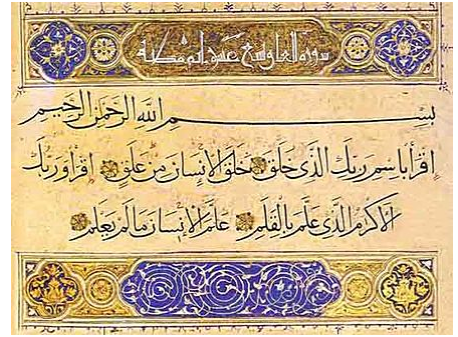 سورة العلق تسع عشر آية مكية
بِسْمِ اللَّهِ الرَّحْمَنِ الرَّحِيمِ
اِقْرَأْ بِاسْمِ رَبِّكَ الَّذِي خَلَقَ خَلَقَ الْإِنْسَانَ مِنْ عَلَقٍ اِقْرَأْ وَرَبُّكَ
الْأَكْرَمُ الَّذِي عَلَّمَ بِالْقَلَمِ عَلَّمَ الْإِنْسَانَ مَا لَمْ يَعْلَمْ